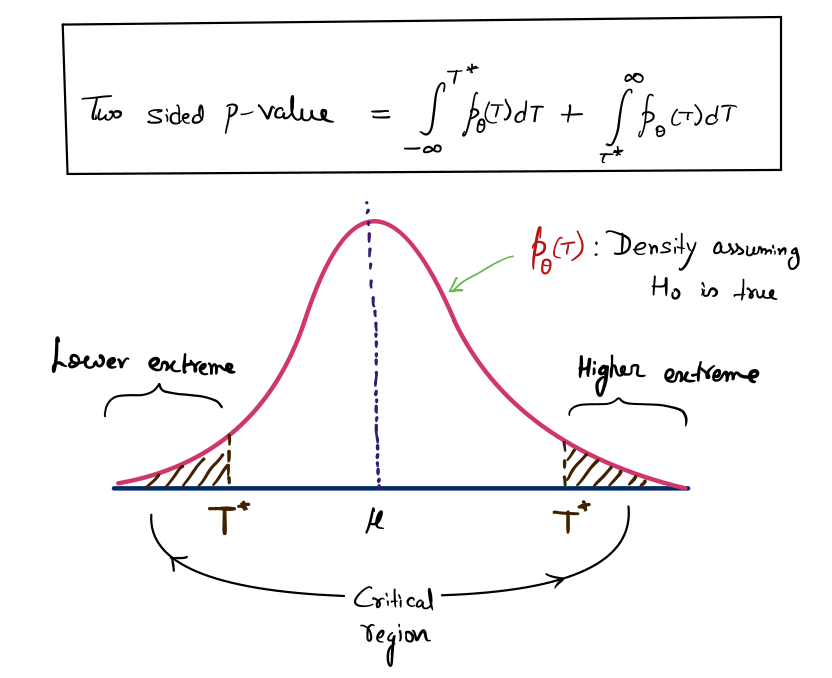 Two sided p-value = ∫_{-∞}^{T*} p_θ(T)dT + ∫_{T*}^{∞} p_θ(T)dT
p_θ(T) : Density assuming
H₀ is true
Lower extreme
Higher extreme
T* μ T*
Critical
region